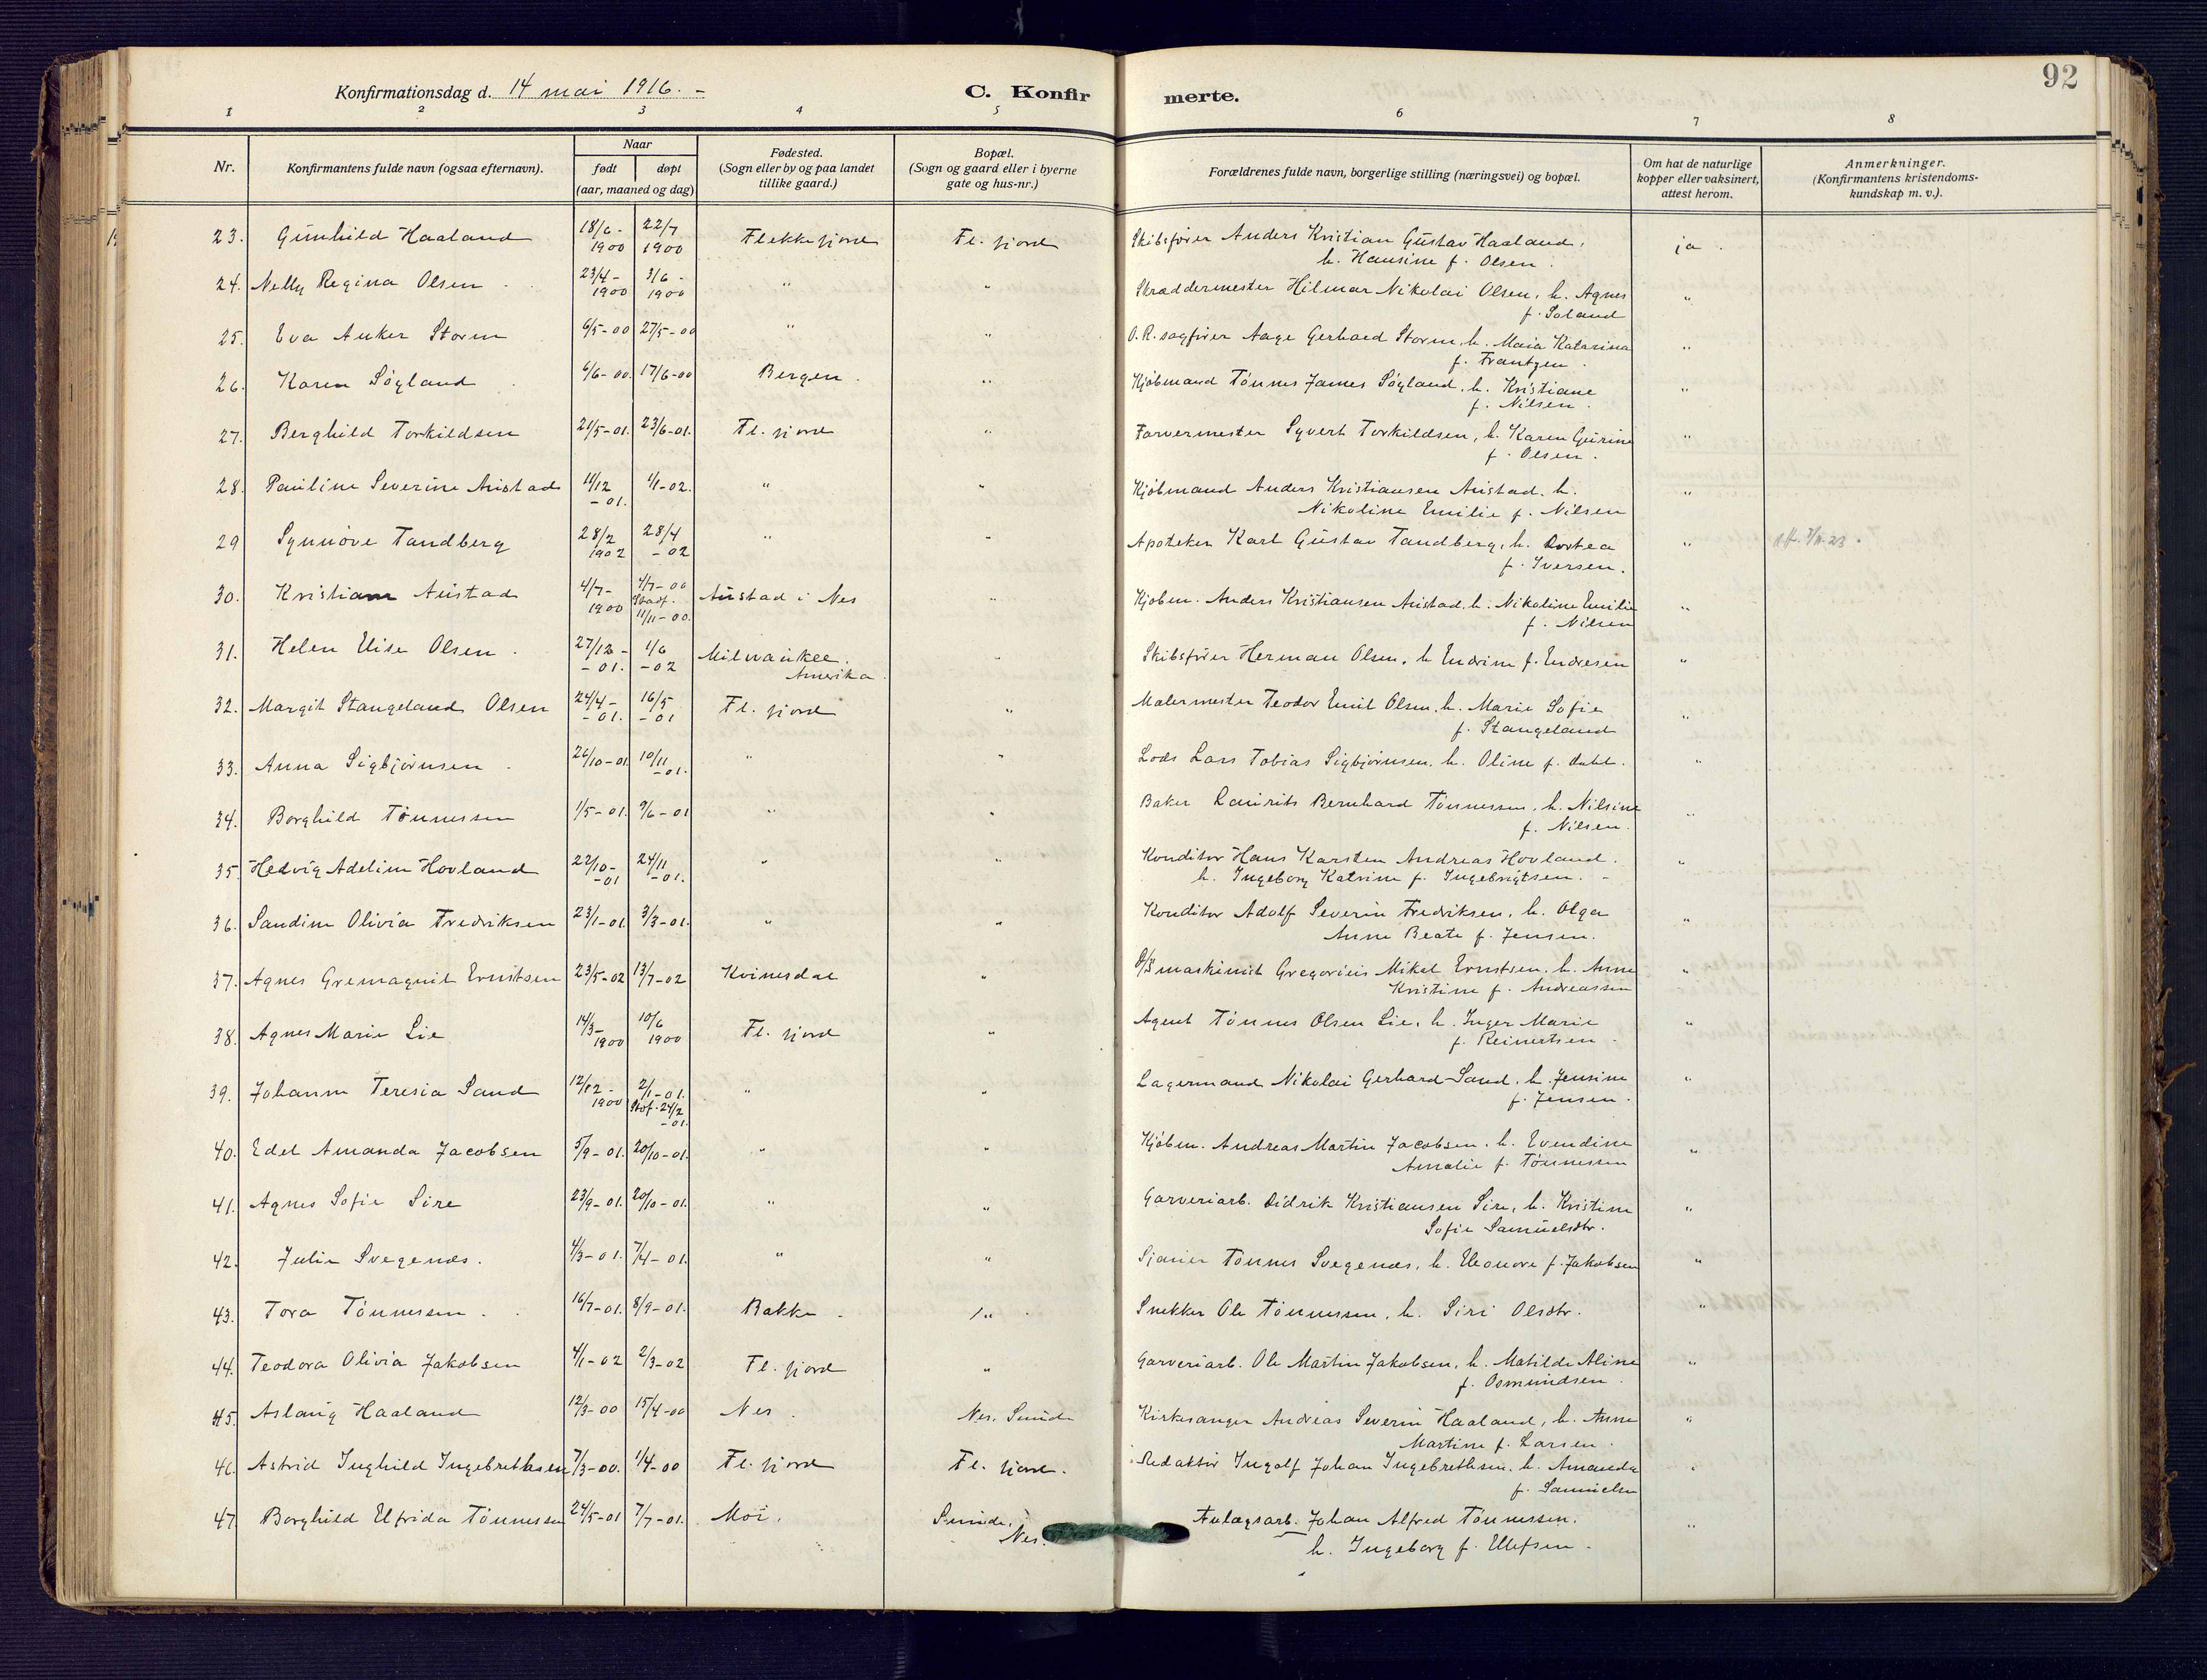 92
Konfirmationsdag d. 14 mai 1916. -
C. Konfir merte.
1 2 3 4 5 6 7 8
Nr.
Konfirmantens fulde navn (ogsaa efternavn).
Naar
født døpt
(aar, maaned og dag)
Fødested.
(Sogn eller by og paa landet
tillike gaard.)
Bopæl.
(Sogn og gaard eller i byerne
gate og hus-nr.)
Forældrenes fulde navn, borgerlige stilling (næringsvei) og bopæl.
Om hat de naturlige
kopper eller vaksinert,
attest herom.
Anmerkninger.
(Konfirmantens kristendoms-
kundskap m. v.).
23. Gunhild Haaland 18/6-1900 22/7 1900 Flekkefjord Fl. fjord Skibsfører Anders Kristian Gustav Haaland, ja
h. Hansine f. Olsen.
24. Nelly Regina Olsen 23/4-1900 3/6-1900 " " Skræddermester Hilmar Nikolai Olsen, h. Agnes "
f. Soland
25. Eva Anker Storm 6/5-00 27/5-00 " " O.R. sagfører Aage Gerhard Storm, h. Maia Katarina "
f. Frantzen.
26. Karen Søyland 6/6-00. 17/6-00 Bergen. " Kjøbmand Tønnes James Søyland, h. Kristiane "
f. Nilsen.
27. Berghild Torkildsen 21/5-01. 23/6-01. Fl. fjord " Farvermester Syvert Torkildsen, h. Karen Gurine "
f. Olsen.
28. Pauline Severine Austad 11/12-01. 1/1-02. " " Kjøbmand Anders Kristiansen Austad, h. "
Nikoline Emilie f. Nilsen
29 Synnøve Tandberg 28/2 1902 28/4-02 " " Apoteker Karl Gustav Tandberg, h. Dortea "
f. Iversen.
30. Kristiane Austad 4/7-1900 4/7-00 Stadf. 11/11-00. Austad i Nes " Kjøbm. Anders Kristiansen Austad, h. Nikoline Emilie "
f. Nilsen
31. Helen Elise Olsen. 27/12-01. 1/6-02 Milwaukee. Amerika. " Skibsfører Herman Olsen, h Endrine f. Endresen "
32. Margit Stangeland Olsen 24/4-01. 16/5-01 Fl. fjord " Malermester Teodor Emil Olsen, h. Marie Sofie "
f. Stangeland
33. Anna Sigbjørnsen. 26/10-01 10/11-01. " " Lods Lars Tobias Sigbjørnsen, h. Oline f. Dahl. "
34. Borghild Tønnessen 1/5-01. 9/6-01 " " Baker Laurits Bernhard Tønnessen, h. Nilsine "
f. Nilsen.
35. Hedvig Adeline Hovland 22/10-01 24/11-01. " " Konditor Hans Karsten Andreas Hovland. "
h. Ingeborg Katrine f. Ingebrigtsen. -
36. Sandine Olivia Fredriksen 23/1-01. 3/3-01. " " Konditor Adolf Severin Fredriksen, h. Olga "
Anne Beate f. Jensen.
37. Agnes Gremagnil Ernstsen 23/5-02 13/7-02 Kvinesdal " D/S maskinist Gregorius Mikal Ernstsen, h. Anne "
Kristine f. Andreassen
38. Agnes Marie Lie 14/3-1900 10/6 1900 Fl. fjord " Agent Tønnes Olsen Lie, h. Inger Marie "
f. Reinertsen.
39. Johanne Teresia Sand 12/12-1900 2/1-01. Stdf. 24/2-01. " " Lagermand Nikolai Gerhard Sand, h. Jensine "
f. Jensen.
40. Edel Amanda Jacobsen 5/9-01. 20/10-01. " " Kjøbm. Andreas Martin Jacobsen, h. Evendine "
Amalie f. Tønnessen
41. Agnes Sofie Sire 23/9-01. 20/10-01. " " Garveriarb. Didrik Kristiansen Sire, h. Kristine "
Sofie Samuelsdtr.
42. Julie Svegenæs. 4/3-01. 7/4-01. " " Sjauer Tønnes Svegenæs, h. Eleonore f. Jakobsen "
43. Tora Tønnessen. 16/7-01. 8/9-01. Bakke " Snekker Ole Tønnessen, h. Siri Olsdtr. "
44. Teodora Olivia Jakobsen 4/1-02 2/3-02 Fl. fjord " Garveriarb. Ole Martin Jakobsen, h. Matilde Aline "
f. Osmundsen.
45. Aslaug Haaland 12/3-00 15/4-00 Nes. Nes. Sunde Kirkesanger Andreas Severin Haaland, h. Anne "
Martine f. Larsen.
46. Astrid Inghild Ingebrethsen 7/3-00. 1/4-00 Fl. fjord Fl. fjord. Redaktør Ingolf Johan Ingebrethsen, h. Amanda "
f. Samuelsen
47. Borghild Elfrida Tønnessen 24/5-01 7/7-01. Moi. Sunde, Nes. Anlægsarb. Johan Alfred Tønnessen, "
h. Ingeborg f. Ellefsen.